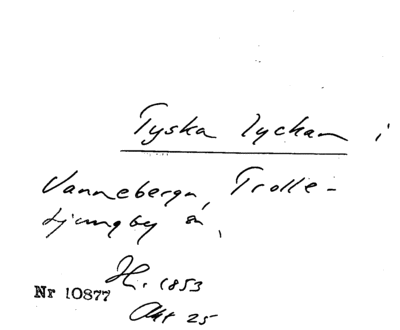 Tyska lyckan i
Vanneberga, Trolle-
Ljungby sn,
Hi. 1853
Nr 10877
Akt 25